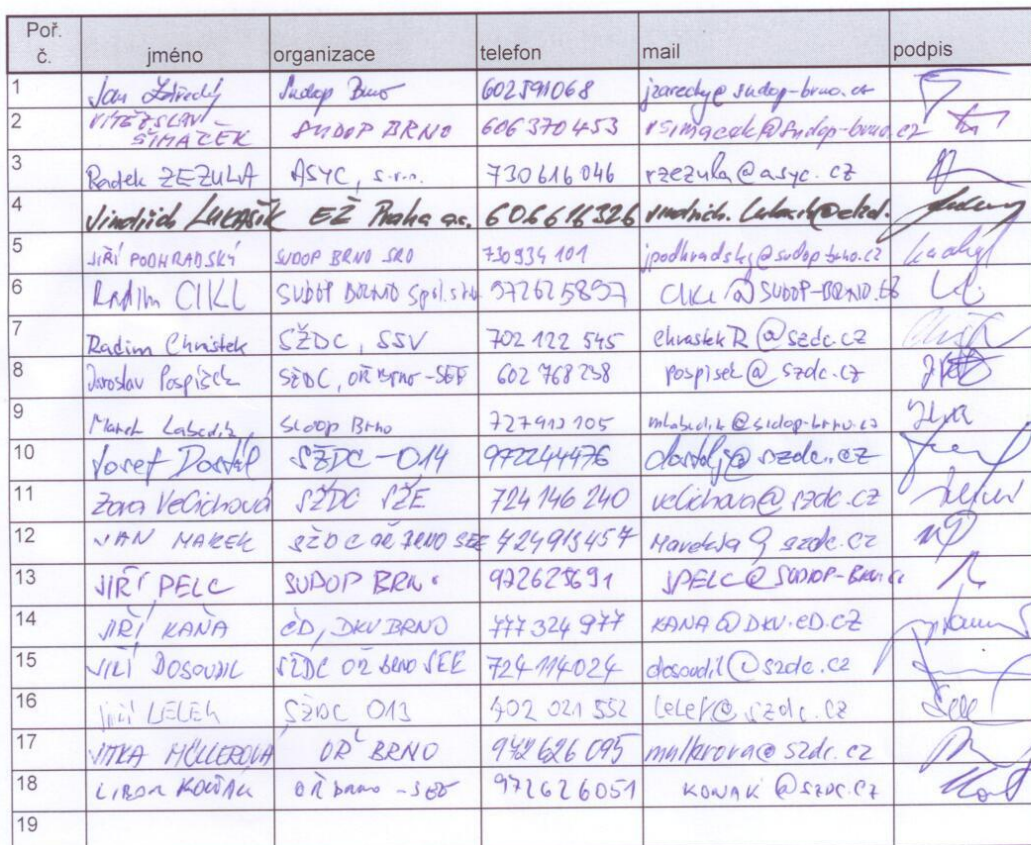 Poř. č. jméno organizace telefon mail podpis
1 Jan Zářecký Sudop Brno 602591068 jzarecky@sudop-brno.cz
2 VÍTĚZSLAV ŠIMÁČEK SUDOP BRNO 606370453 vsimacek@sudop-brno.cz
3 Radek ZEZULA ASYC, s.r.o. 730616046 rzezula@asyc.cz
4 Jindřich LUKAŠÍK EŽ Praha a.s. 606616326
5 JIŘÍ PODHRADSKÝ SUDOP BRNO SRO 730934101 jpodhradsky@sudop-brno.cz
6 Radim CIKL SUDOP BRNO spol. s r.o. 972625897
7 Radim Chrástek SŽDC, SSV 702 122 545 chrastekR@szdc.cz
8 Jaroslav Pospíšek SŽDC, OŘ Brno-SEE 602 768 238 pospisek@szdc.cz
9 Marek Sudop Brno 727913105
10 Josef Dostál SŽDC-O14 972244476 dostalj@szdc.cz
11 Zora Velichová SŽDC SŽE 724 146 240 velichova@szdc.cz
12 JAN MAREK SŽDC OŘ BRNO SEE 724913457 Marekja@szdc.cz
13 JIŘÍ PELC SUDOP BRNO 972625691 JPELC@SUDOP-BRNO.CZ
14 JIŘÍ KAŇA ČD, DKV BRNO 777 324 977 KANA@DKV.CD.CZ
15 JIŘÍ DOSOUDIL SŽDC OŘ BRNO SEE 724114024 dosoudil@szdc.cz
16 Jiří LELEK SŽDC O13 702 021 552 lelek@szdc.cz
17 JITKA MÜLLEROVÁ OŘ BRNO 972626095 mullerova@szdc.cz
18 LIBOR KOŇAK OŘ Brno-SEE 972626051 KONAK@SZDC.CZ
19